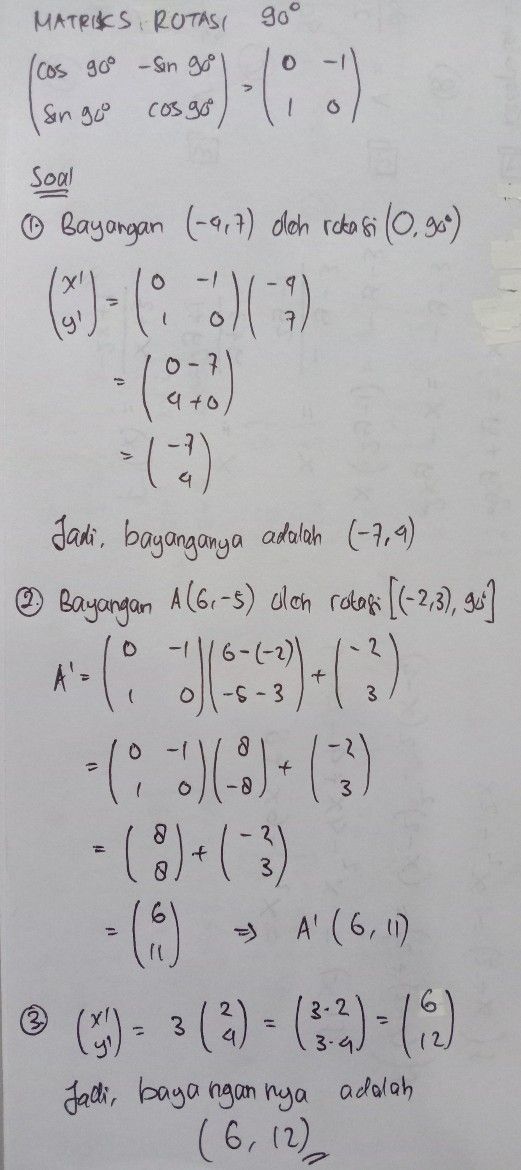 MATRIKS ROTASI 90°
(cos 90° -sin 90°) = (0 -1)
(sin 90° cos 90°) (1 0)
Soal
① Bayangan (-4,7) oleh rotasi (0, 90°)
(x') = (0 -1) (-4)
(y') (1 0) (7)
= (0-7)
(4+0)
= (-7)
(4)
Jadi, bayanganya adalah (-7,4)
② Bayangan A(6,-5) oleh rotasi [(-2,3), 90°]
A' = (0 -1) (6-(-2)) + (-2)
(1 0) (-5-3) (3)
= (0 -1) (8) + (-2)
(1 0) (-8) (3)
= (8) + (-2)
(8) (3)
= (6) ⇒ A' (6, 11)
(11)
③ (x') = 3 (2) = (3·2) = (6)
(y') (4) (3·4) (12)
Jadi, bayangannya adalah
(6, 12)